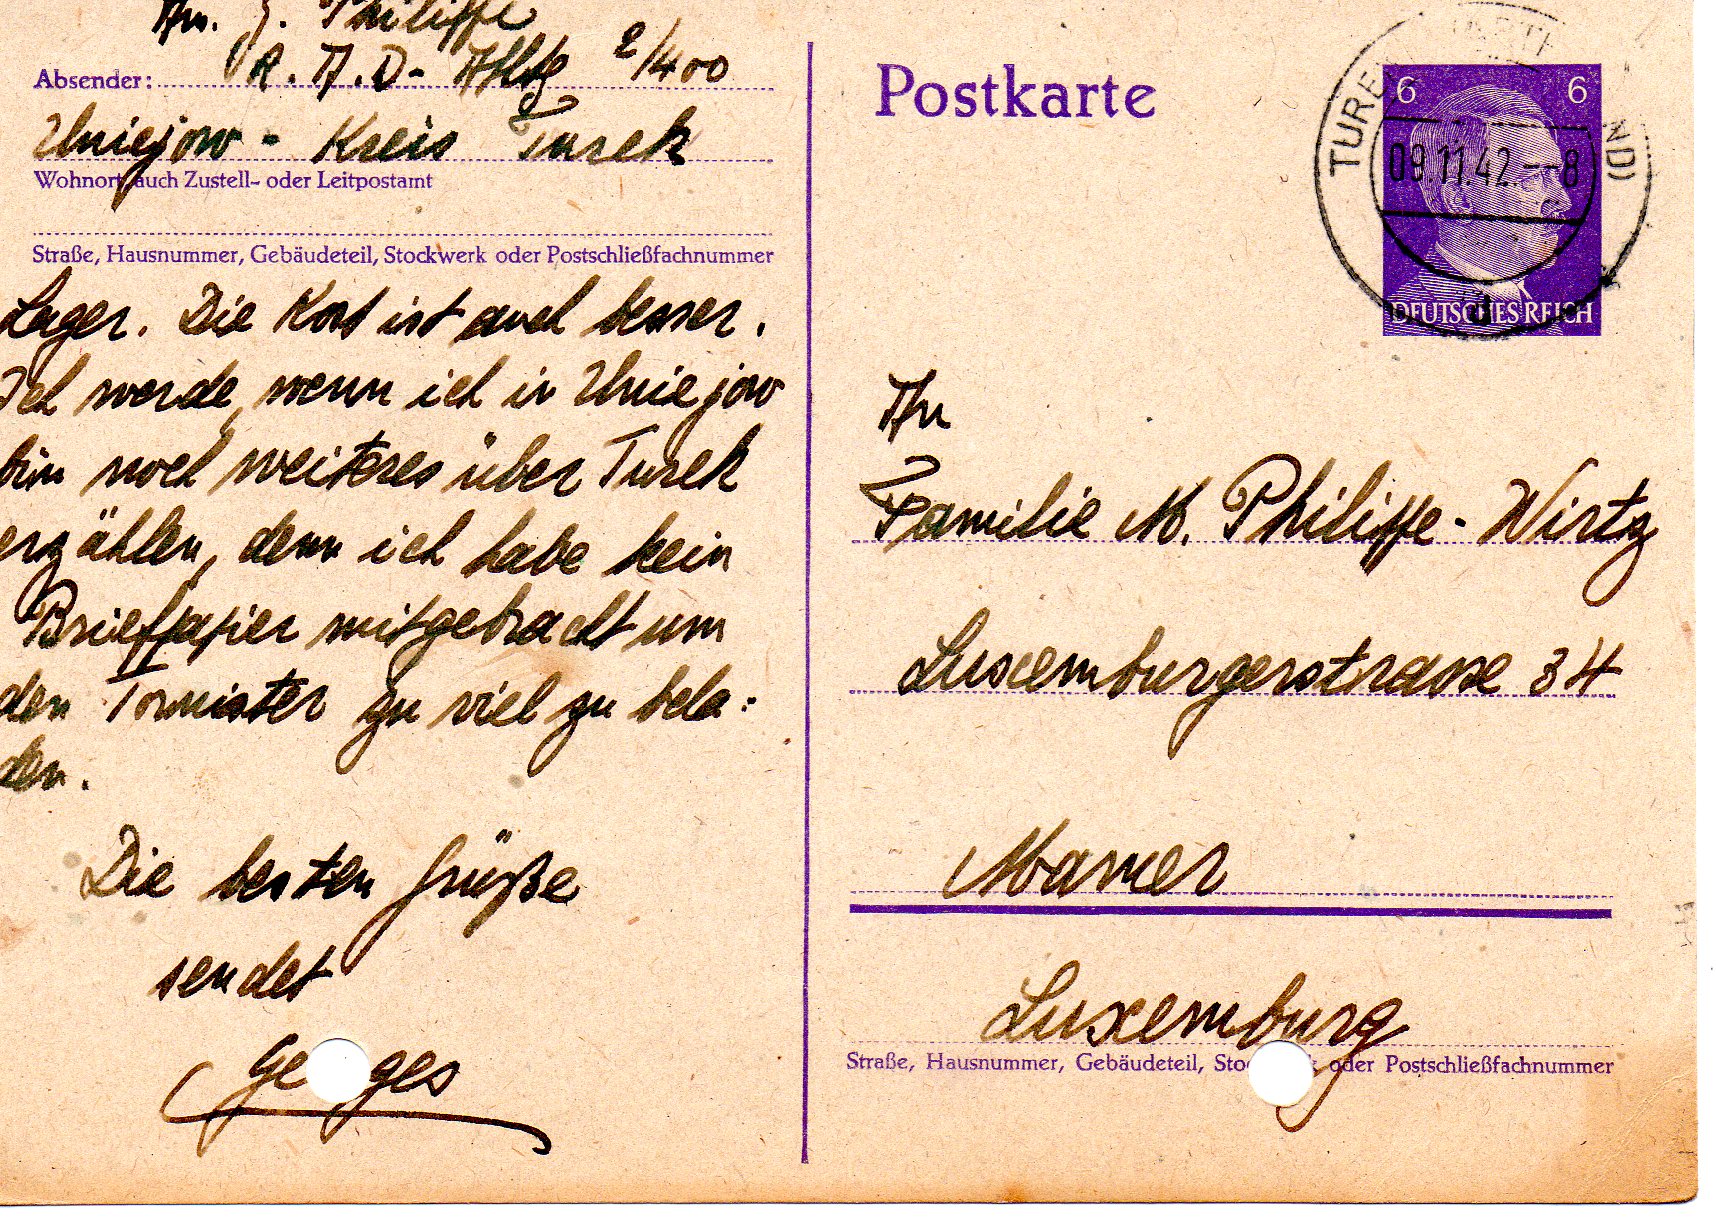 Am. G. Philippe
Absender: R.A.D- Abltg 2/400
Uniejow - Kreis Turek
Wohnort, auch Zustell- oder Leitpostamt
Straße, Hausnummer, Gebäudeteil, Stockwerk oder Postschließfachnummer
Lager. Die Kost ist auch besser.
Ich werde, wenn ich in Uniejow
bin noch weiteres über Turek
erzählen, denn ich habe kein
Briefpapier mitgebracht um
den Tornister zu viel zu bela:
den.
Die besten Grüße
sendet
Ge ges
Postkarte
6 6
TUREK
09.11.42.--8
d
DEUTSCHES REICH
An
Familie M. Philippe-Wirtz
Luxemburgerstrasse 34
Mamer
Luxemburg
Straße, Hausnummer, Gebäudeteil, Sto k oder Postschließfachnummer